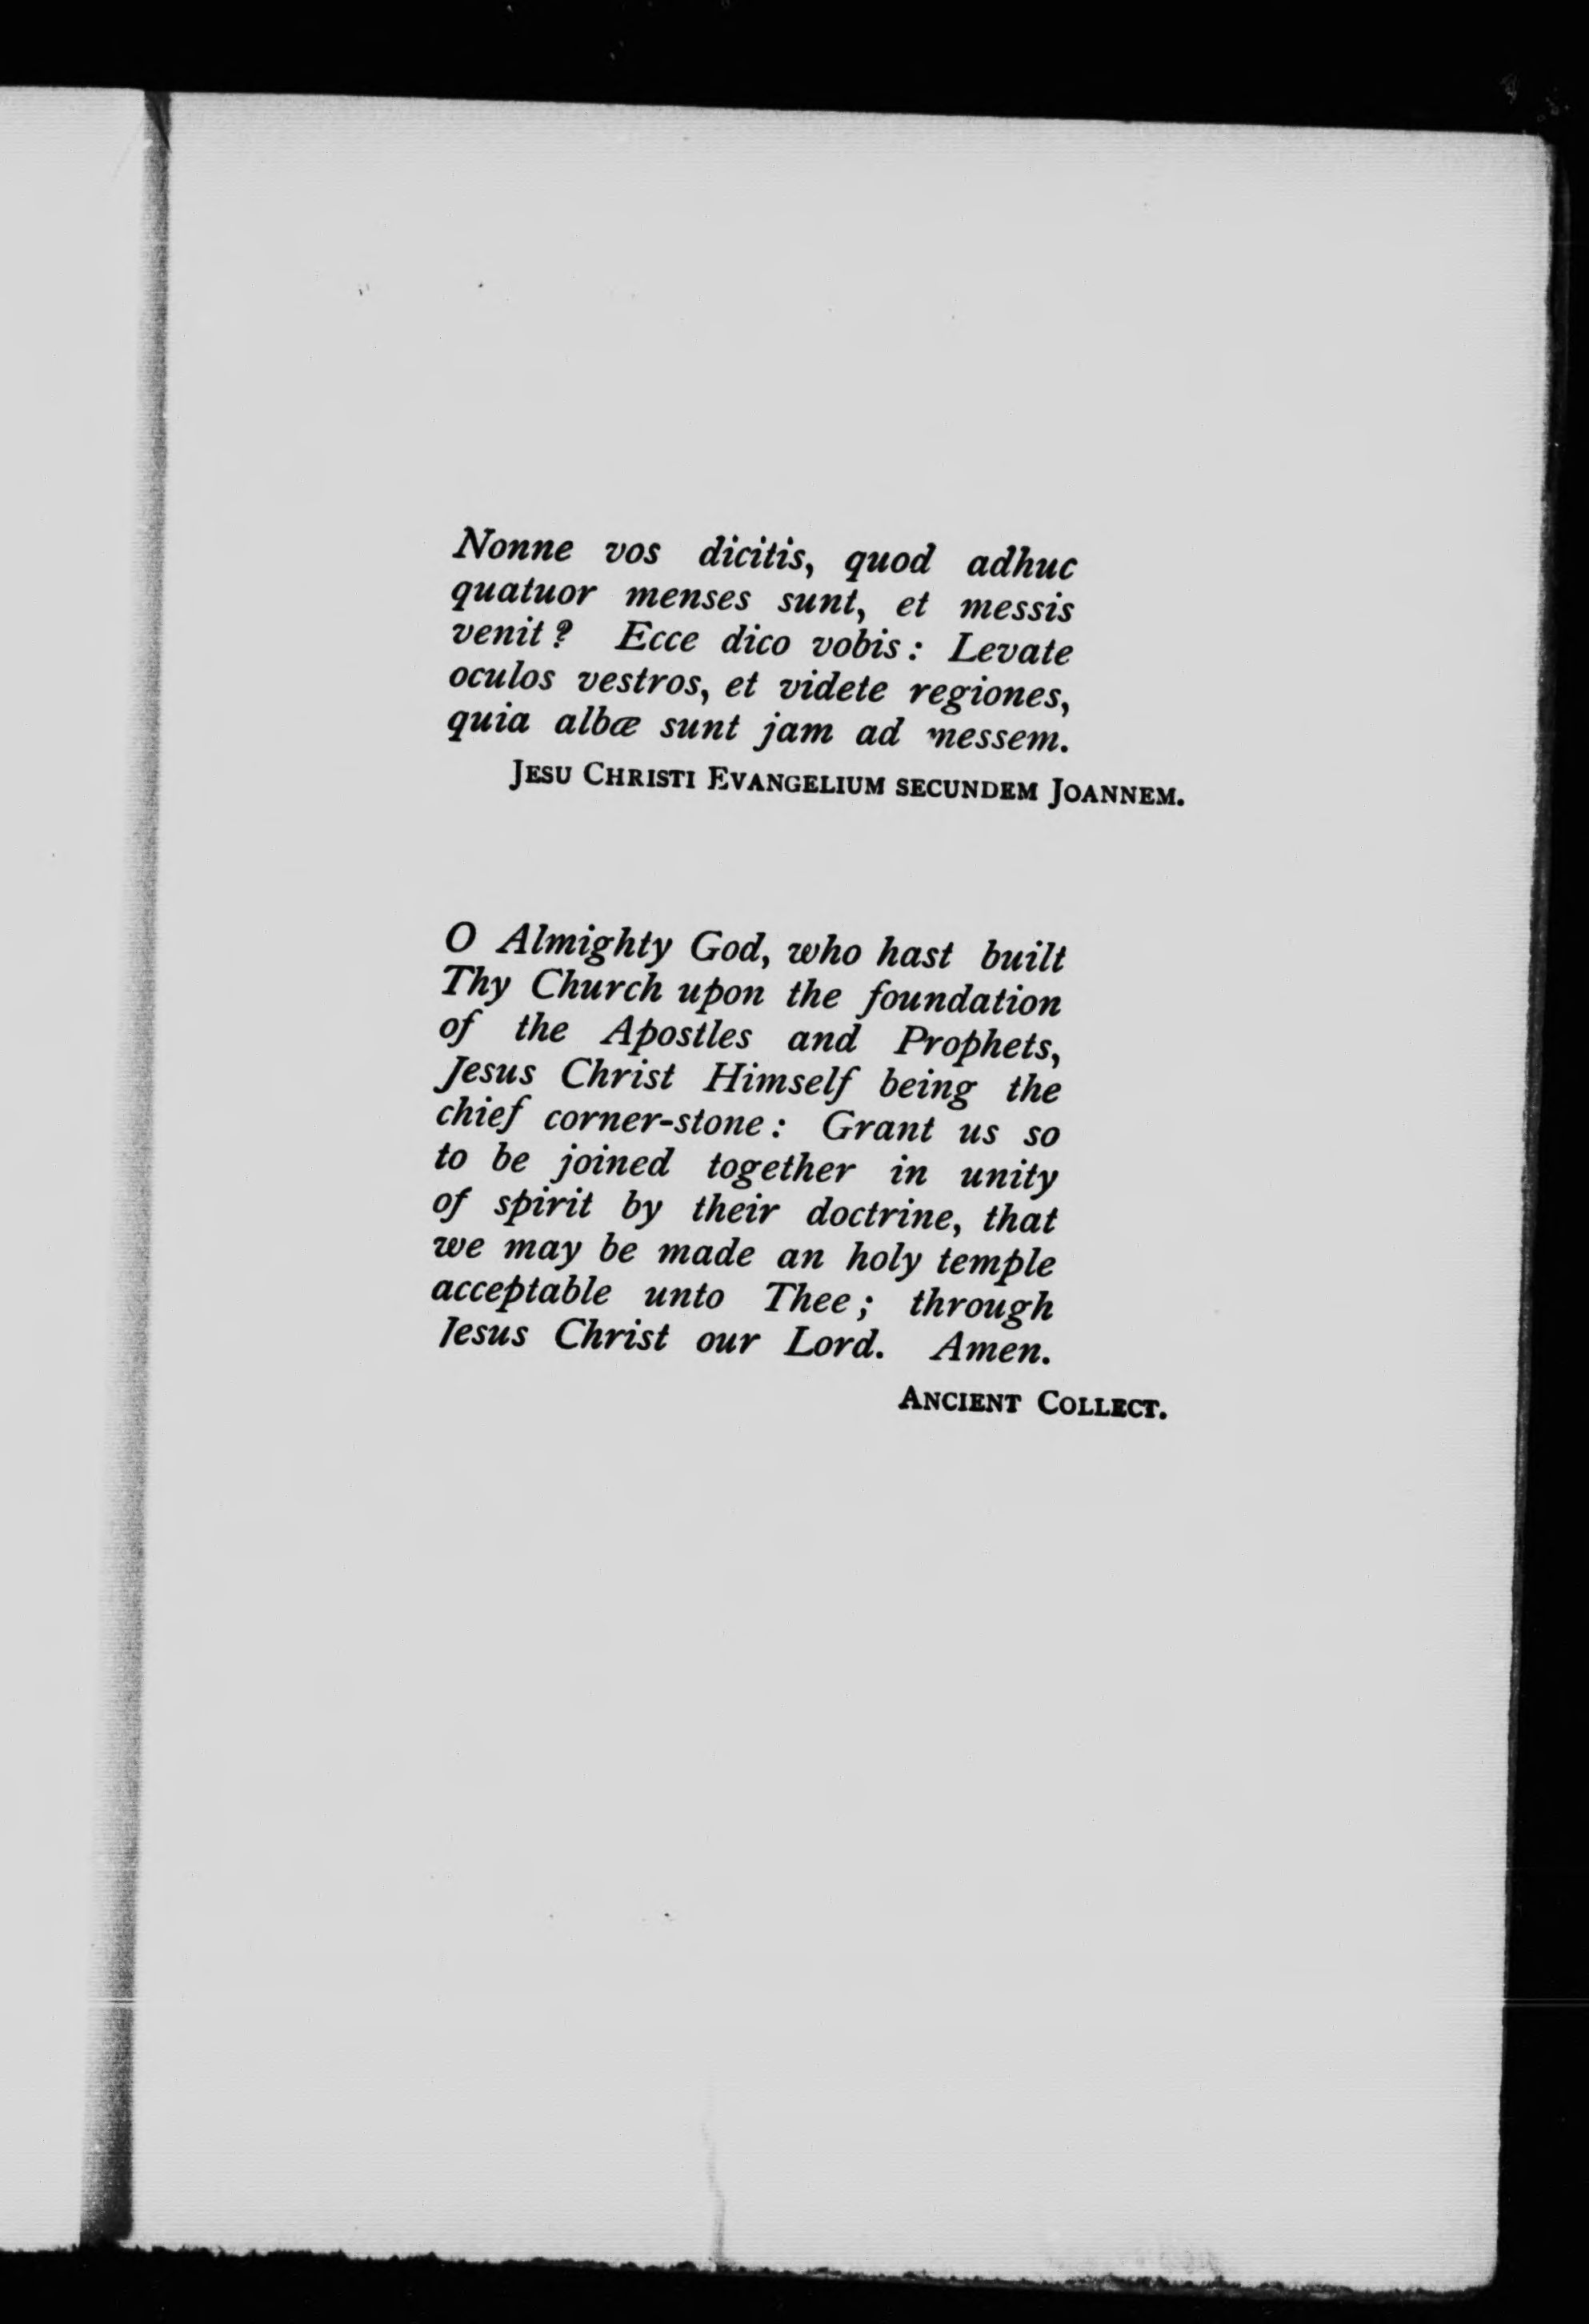 Nonne vos dicitis, quod adhuc
quatuor menses sunt, et messis
venit? Ecce dico vobis: Levate
oculos vestros, et videte regiones,
quia albæ sunt jam ad messem.
JESU CHRISTI EVANGELIUM SECUNDEM JOANNEM.
O Almighty God, who hast built
Thy Church upon the foundation
of the Apostles and Prophets,
Jesus Christ Himself being the
chief corner-stone: Grant us so
to be joined together in unity
of spirit by their doctrine, that
we may be made an holy temple
acceptable unto Thee; through
Jesus Christ our Lord. Amen.
ANCIENT COLLECT.